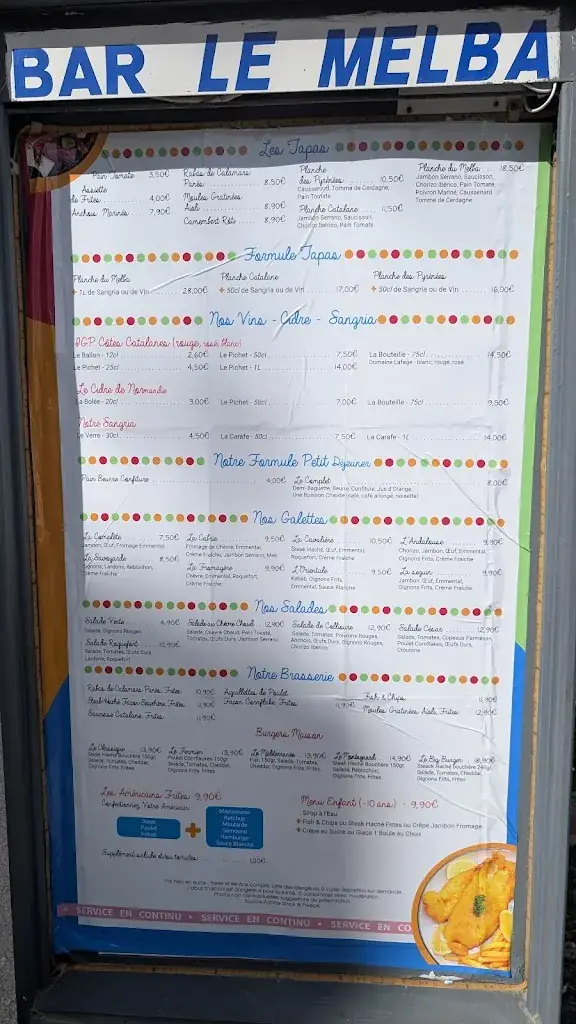 BAR LE MELBA
Les Tapas
Pain Tomate 3,50€
Assiette
de Frites 4,00€
Anchois Marinés 7,90€
Rabas de Calamars
Panés 8,50€
Moules Gratinées
Aïoli 8,90€
Camembert Rôti 8,90€
Planche
des Pyrénées 10,50€
Caussenard, Tomme de Cerdagne,
Pain Tomate
Planche Catalane 11,50€
Jambon Serrano, Saucisson,
Chorizo Ibérico, Pain Tomate
Planche du Melba 18,50€
Jambon Serrano, Saucisson,
Chorizo Ibérico, Pain Tomate,
Poivron Mariné, Caussenard
Tomme de Cerdagne
Formule Tapas
Planche du Melba
+ 1L de Sangria ou de Vin 28,00€
Planche Catalane
+ 50cl de Sangria ou de Vin 17,00€
Planche des Pyrénées
+ 50cl de Sangria ou de Vin 16,00€
Nos Vins - Cidre - Sangria
IGP Côtes Catalanes (rouge, rosé, blanc)
Le Ballon - 12cl 2,60€
Le Pichet - 50cl 7,50€
La Bouteille - 75cl 14,50€
Domaine Lafage - blanc, rouge, rosé
Le Pichet - 25cl 4,50€
Le Pichet - 1L 14,00€
Le Cidre de Normandie
La Bolée - 20cl 3,00€
Le Pichet - 50cl 7,00€
La Bouteille - 75cl 9,50€
Notre Sangria
Le Verre - 30cl 4,50€
La Carafe - 50cl 7,50€
La Carafe - 1L 14,00€
Notre Formule Petit Déjeuner
Pain Beurre Confiture 4,00€
Le Complet 8,00€
Demi-Baguette, Beurre, Confiture, Jus d'Orange,
Une Boisson Chaude (café, café allongé, noisette)
Nos Galettes
La Complète 7,50€
Jambon, Œuf, Fromage Emmental
La Savoyarde 8,50€
Oignons, Lardons, Reblochon,
Crème Fraîche
La Cabrie 9,50€
Fromage de Chèvre, Emmental,
Crème Fraîche, Jambon Serrano, Miel
La Fromagère 9,90€
Chèvre, Emmental, Roquefort,
Crème Fraîche
La Cavalière 10,50€
Steak Haché, Œuf, Emmental,
Roquefort, Crème Fraîche
L'Orientale 9,50€
Kebab, Oignons Frits,
Emmental, Sauce Blanche
L'Andalouse 9,90€
Chorizo, Jambon, Œuf, Emmental,
Oignons Frits, Crème Fraîche
La seguin 9,90€
Jambon, Œuf, Emmental,
Oignons Frits, Crème Fraîche
Nos Salades
Salade Verte 4,90€
Salade, Oignons Rouges
Salade Roquefort 10,90€
Salade, Tomates, Œufs Durs,
Lardons, Roquefort
Salade au Chèvre Chaud 12,90€
Salade, Chèvre Chaud, Pain Toasté,
Tomates, Œufs Durs, Jambon Serrano
Salade de Collioure 12,90€
Salade, Tomates, Poivrons Rouges,
Anchois, Œufs Durs, Oignons Rouges,
Chorizo Ibérico
Salade César 12,90€
Salade, Tomates, Copeaux Parmesan,
Poulet Cornflakes, Œufs Durs,
Croutons
Notre Brasserie
Rabas de Calamars Panés, Frites 10,90€
Steak Haché Façon Bouchère, Frites 11,90€
Saucisse Catalane, Frites 11,90€
Aiguillettes de Poulet
Façon Cornflake, Frites 11,90€
Fish & Chips 11,90€
Moules Gratinées Aïoli, Frites 12,90€
Burgers Maison
Le Classique 13,90€
Steak Haché Bouchère 150gr,
Salade, Tomates, Cheddar,
Oignons Frits, Frites
Le Fermier 13,90€
Poulet Cornflakes 150gr,
Salade, Tomates, Cheddar,
Oignons Frits, Frites
Le Méditerranée 13,90€
Fish, 150gr, Salade, Tomates,
Cheddar, Oignons Frits, Frites
Le Montagnard 14,90€
Steak Haché Bouchère 150gr,
Salade, Reblochon,
Oignons Frits, Frites
Le Big Burger 18,90€
Steack Haché Bouchère 240gr,
Salade, Tomates, Cheddar,
Oignons Frits, Frites
Les Américains Frites 9,90€
Confectionnez Votre Américain
Steak
Poulet
Kebab
+
Mayonnaise
Ketchup
Moutarde
Samouraï
Hamburger
Sauce Blanche
Supplément salade et/ou tomates 1,00€
Menu Enfant (-10 ans) - 9,90€
Sirop à l'Eau
+ Fish & Chips ou Steak Haché Frites ou Crêpe Jambon Fromage
+ Crêpe au Sucre ou Glace 1 Boule au Choix
Prix nets en euros - taxes et service compris. Liste des allergènes à votre disposition sur demande.
L'abus d'alcool est dangereux pour la santé, à consommer avec modération.
• SERVICE EN CONTINU • SERVICE EN CONTINU • SERVICE EN CO